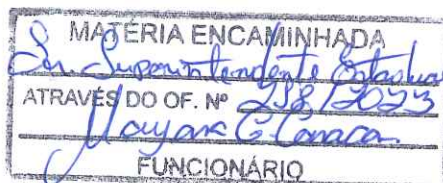 MATÉRIA ENCAMINHADA
Sr. Superintendente Estadual
ATRAVÉS DO OF. Nº 258/2023
Mayara C.
FUNCIONÁRIO